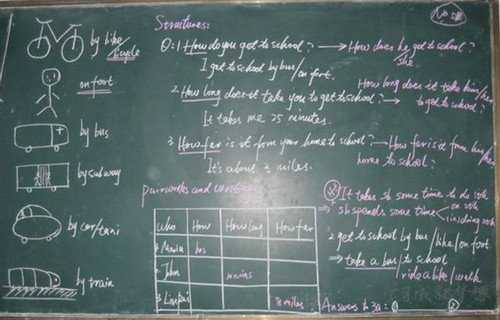 by bike
bicycle
on foot
by bus
by subway
by car/taxi
by train
Structures:
Q: 1 How do you get to school? → How does he get to school?
she
I get to school by bus/on foot.
2. How long does it take you to get to school? → How long does it take him/her
to get to school?
It takes me 25 minutes.
3 How far is it from your home to school? → How far is it from his/her
home to school?
It's about 3 miles.
pairworks and
Who How How long How far
1 bus
2 John mins
3 8 miles
It takes sb some time to do sth
⇒ sb spends some time on sth
(in) doing sth
2 get to school by bus/bike/on foot
⇒ take a bus to school
ride a bike/walk
Answers to 3a: ① ②